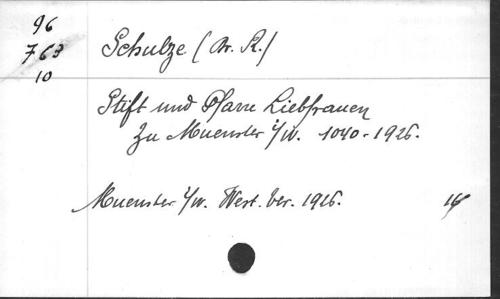 96
763
10
Schulze (Dr. R.)
Stift und Pfarre Liebfrauen
zu Muenster i/W. 1040-1926.
Muenster i/W. West. ver. 1926. 16